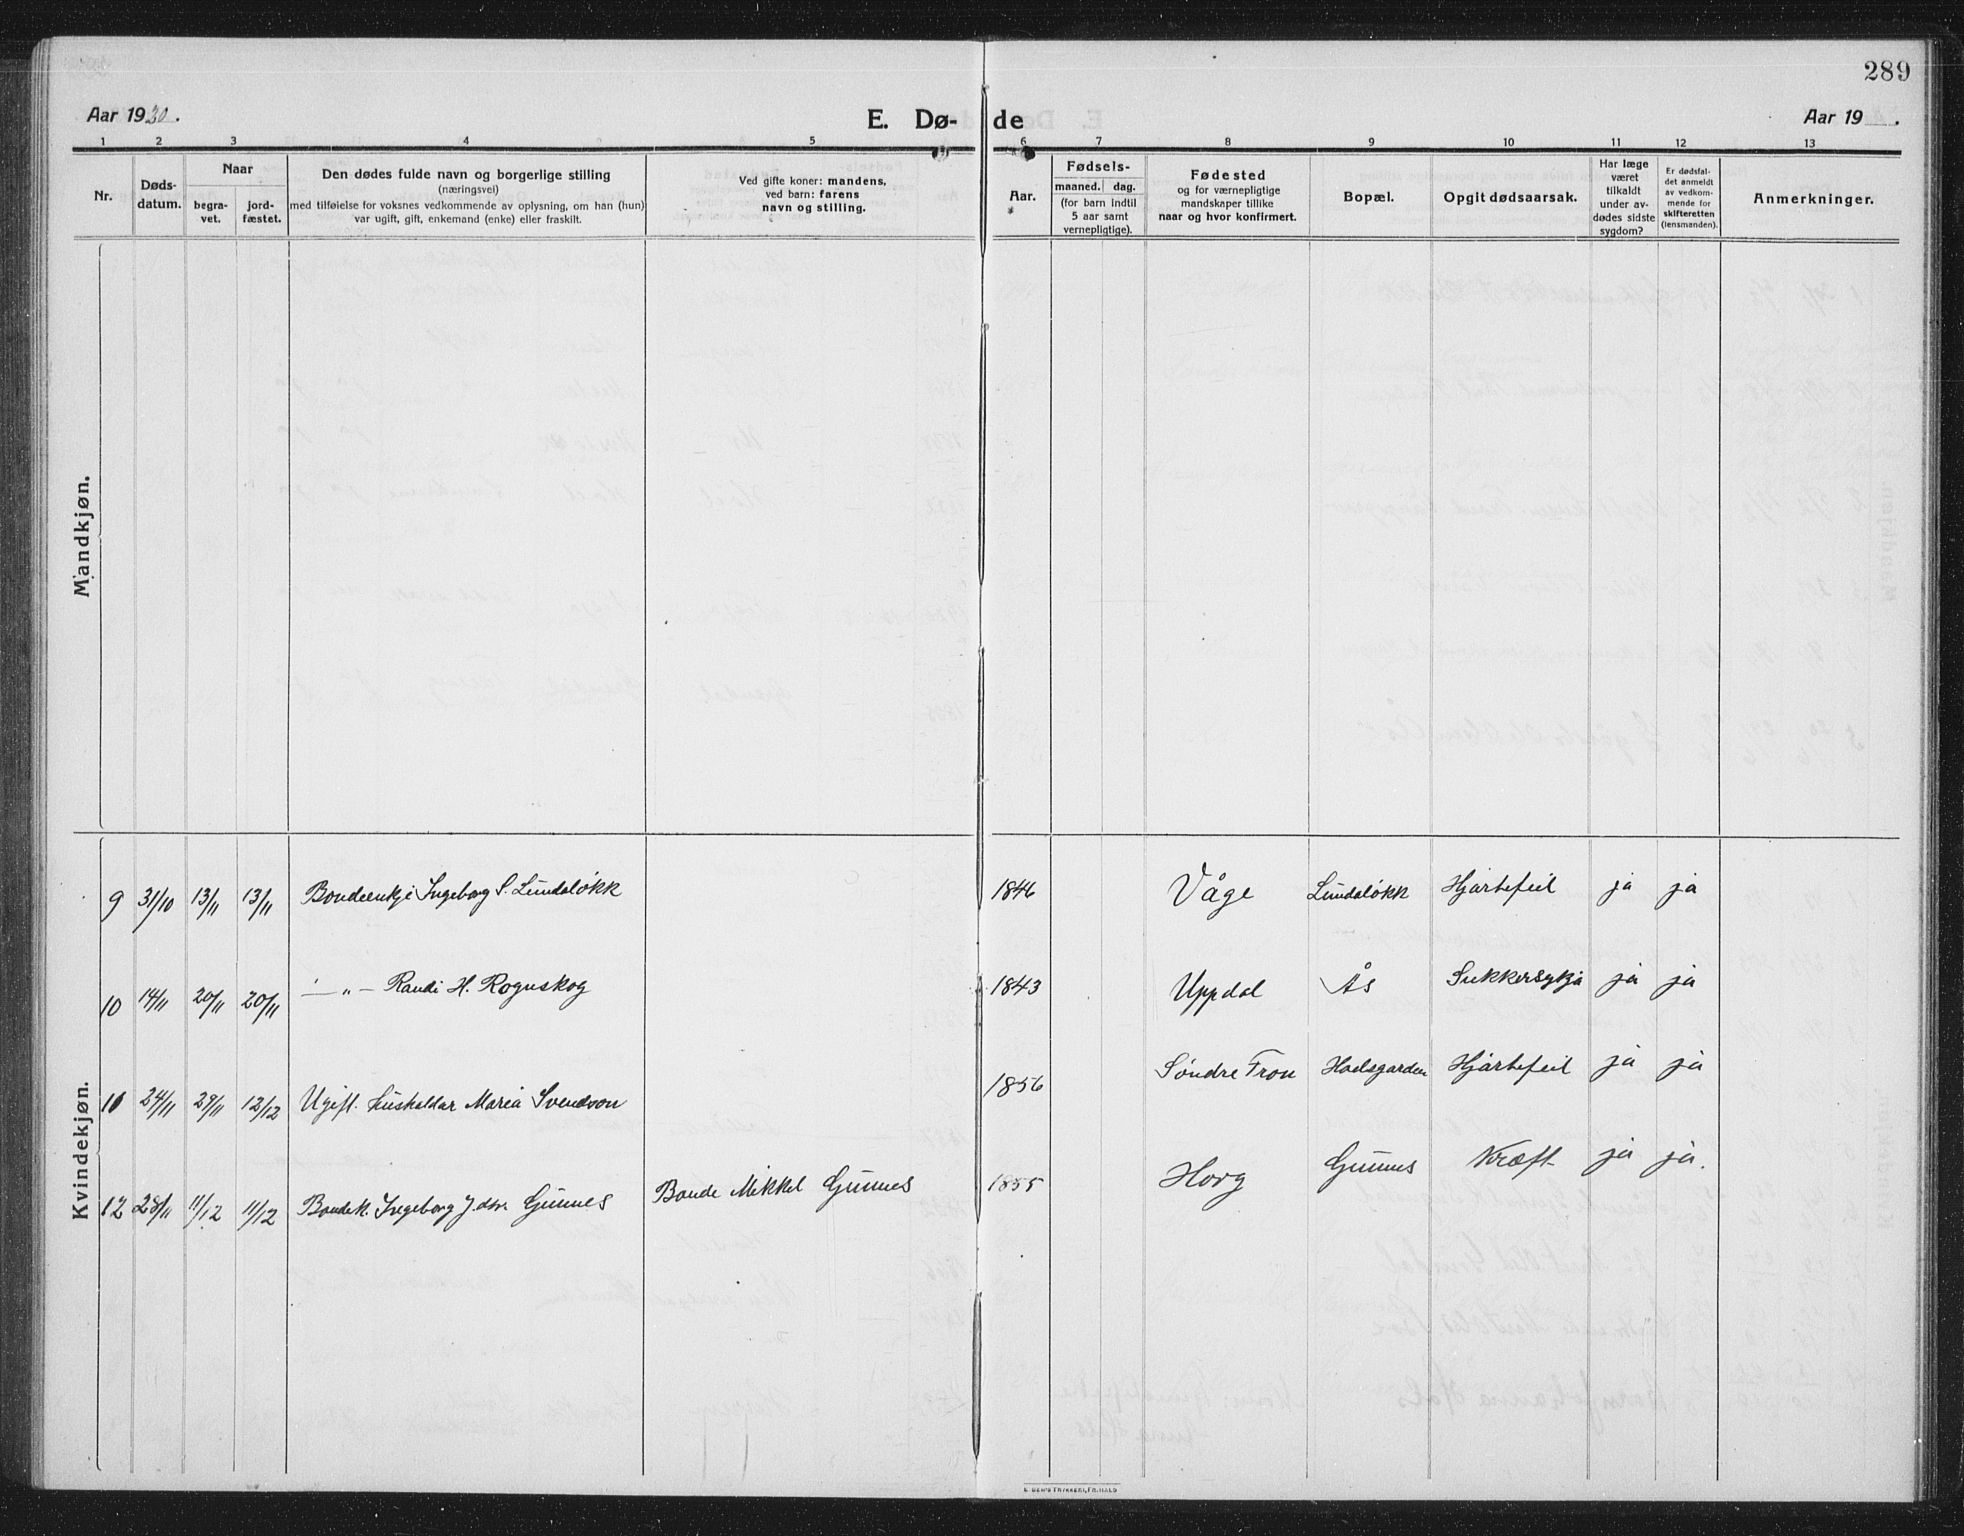 289
Aar 1930.
E. Dø-
de
Aar 19 .
1 2 3 4 5 6 7 8 9 10 11 12 13
Nr.
Døds-
datum.
Naar
begra-
vet.
jord-
fæstet.
Den dødes fulde navn og borgerlige stilling
(næringsvei)
med tilføielse for voksnes vedkommende av oplysning, om han (hun)
var ugift, gift, enkemand (enke) eller fraskilt.
Ved gifte koner: mandens,
ved barn: farens
navn og stilling.
Aar.
Fødsels-
maaned. dag.
(for barn indtil
5 aar samt
vernepligtige).
Fødested
og for værnepligtige
mandskaper tillike
naar og hvor konfirmert.
Bopæl.
Opgit dødsaarsak.
Har læge
været
tilkaldt
under av-
dødes sidste
sygdom?
Er dødsfal-
det anmeldt
av vedkom-
mende for
skifteretten
(lensmanden).
Anmerkninger.
Mandkjøn.
Kvindekjøn.
9 31/10 13/11 13/11 Bondeenkje Ingeborg S. Lundaløkk 1846 Våge Lundaløkk Hjartefeil ja ja
10 14/11 20/11 20/11 — „ — Randi H. Rognskog 1843 Uppdal Ås Sukkersykja ja ja
11 24/11 29/11 12/12 Ugift. hushaldar Maria Svendson 1856 Søndre Fron Hoelsgarden Hjartefeil ja ja
12 28/11 11/12 11/12 Bondek. Ingeborg J. dtr. Gunnes Bonde Mikkel Gunnes 1855 Horg Gunnes Kræft ja ja.